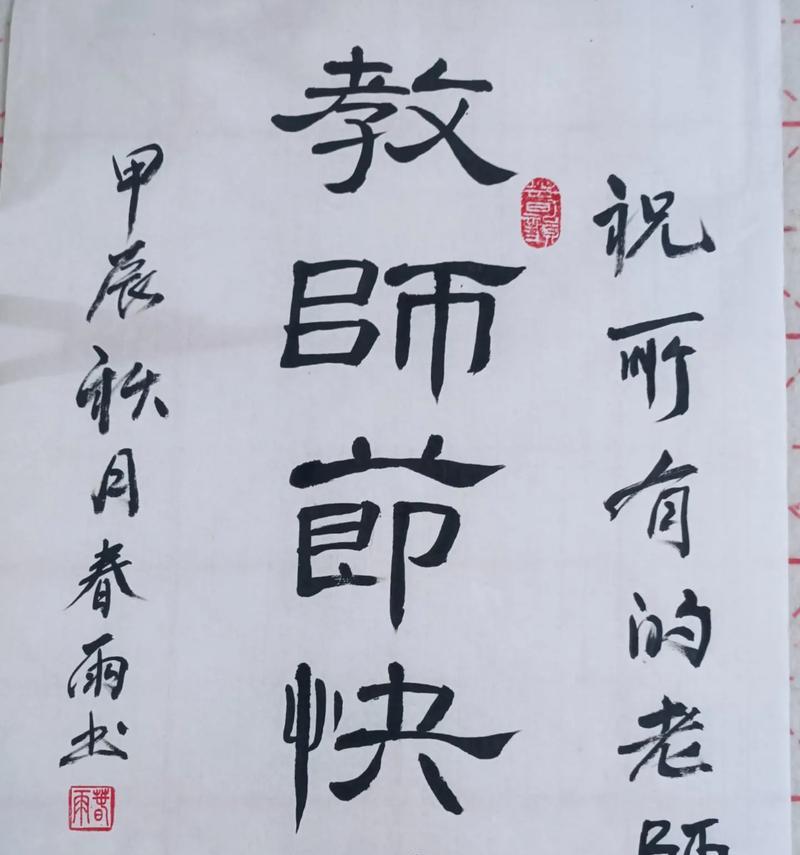 祝所有的老師
教師節快
甲辰秋月春雨书
春雨